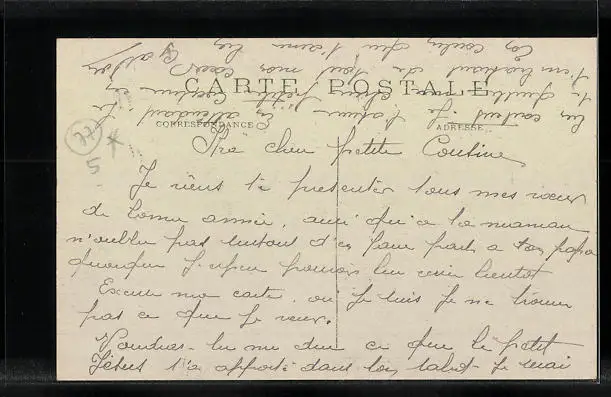 CARTE POSTALE
CORRESPONDANCE
ADRESSE
77
5 *
Ma chère petite Cousine
Je viens te présenter tous mes vœux
de bonne année, ainsi qu'a ta maman
n'oublie pas surtout d'en faire part a ton papa
quoique j'espère pouvoir lui écrire bientôt
Excuse ma carte, où je suis je ne trouve
pas ce que je veux.
Voudras-tu me dire ce que le petit
Jésus t'a apporté dans ton sabot. Je serai
bien content. Je
en attendant
petite Cousine
de tout mon cœur
Ton cousin qui t'aime bien